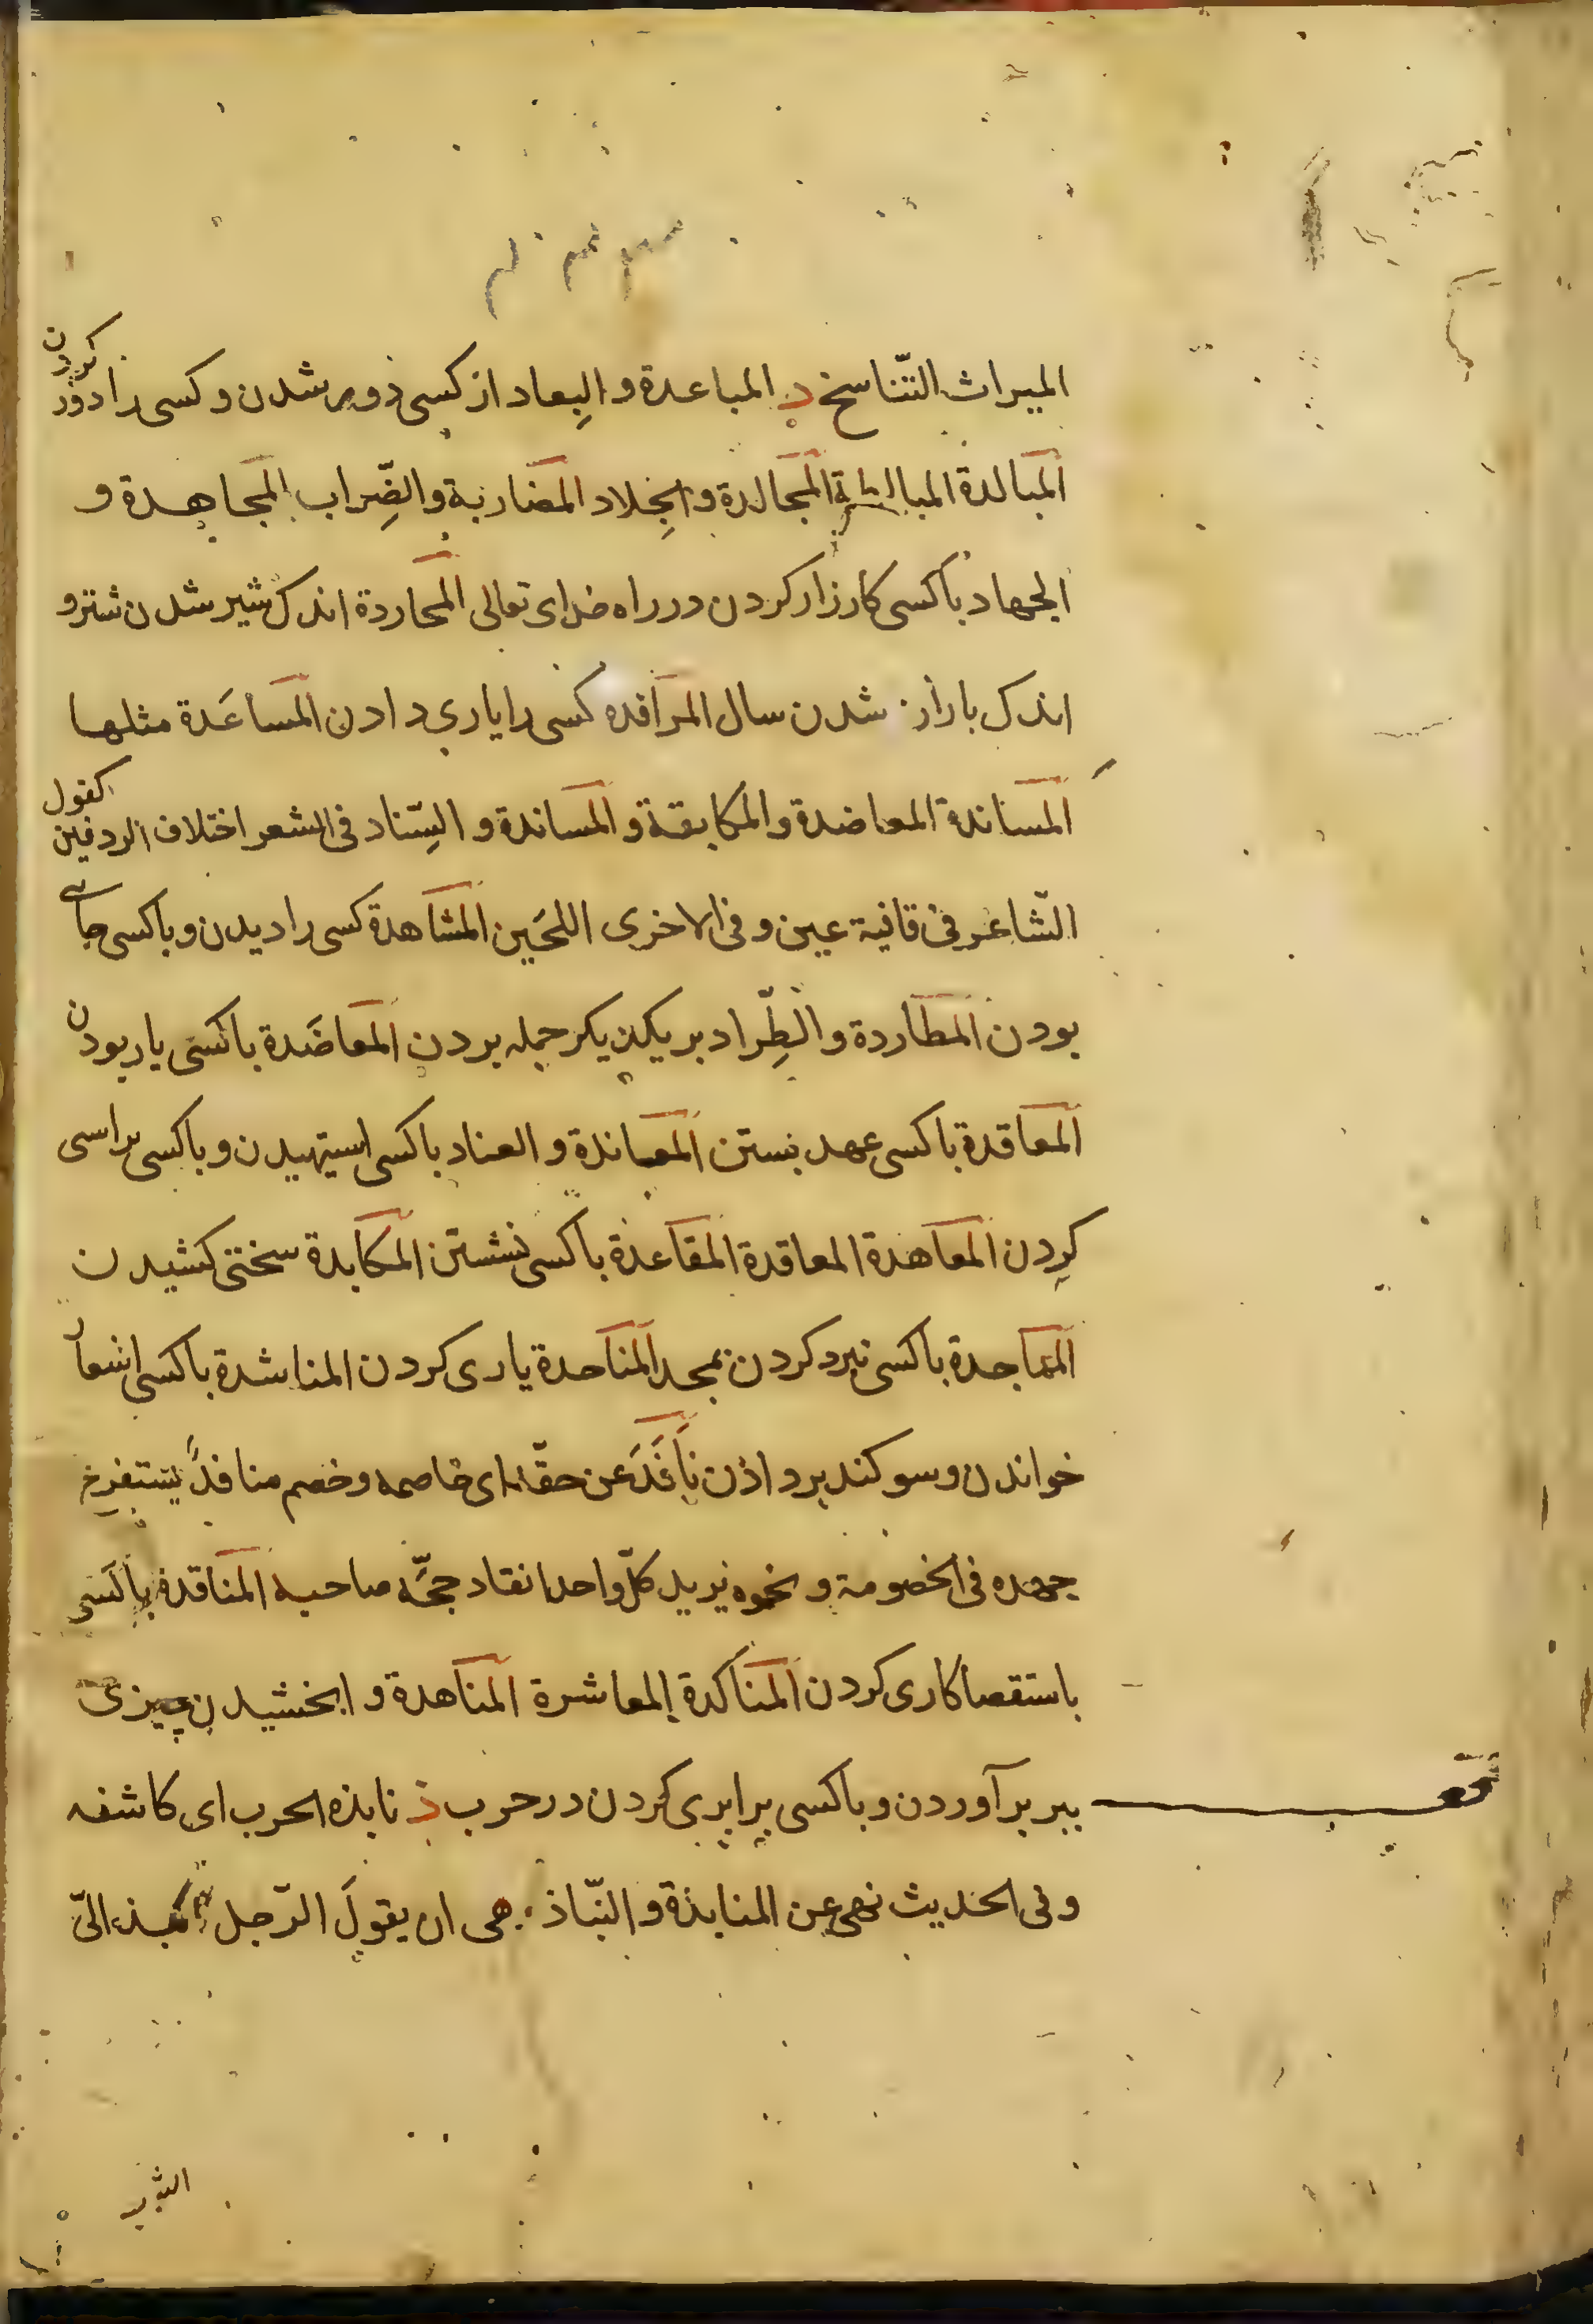 الميراث التّناسخ د المباعدة و البِعاد از كسى دور شدن و كسى را دور كردن
المبالدة المبالطة المجالدة و الجِلاد المضاربة و الضِّراب المجاهدة و
الجهاد با كسى كارزار كردن در راه خداى تعالى المحاردة اندك شير شدن شتر و
اندك باران شدن سال المرافده كسى را يارى دادن المساعَدة مثلها
المساندة المعاضدة و المكابقة و المساندة و السِّناد فى الشعر اختلاف الردفين كقول
الشّاعر فى قافية عين و فى الاخرى اللحَين المشاهدة كسى را ديدن و با كسى جاى
بودن المطاردة و الطِّراد بر يكديكر حمله بردن المعاضَدة با كسى يار بودن
المعاقدة با كسى عهد بستن المعاندة و العناد با كسى استهيدن و با كسى براسى
كردن المعاهدة المعاقدة المقاعدة با كسى نشستن المكابدة سختى كشيدن
المماجدة با كسى نبرد كردن بمجد المناجدة يارى كردن المناشدة با كسى اشعار
خواندن و سوكند بر دادن نَافَدَ عن حقّه اى خاصمه و خصم منافدٌ يستفرغ
جهده فى الخصومة و نحوه يريد كلّ واحد انفاد حجّة صاحبه المناقدة با كسى
باستقصا كارى كردن المناكدة المعاشرة المناهدة و ابخشيدن چيزى
ببر برآوردن و با كسى برابرى كردن در حرب ذ نابذه الحرب اى كاشفه
و فى الحديث نهى عن المنابذة و النّباذ هى ان يقولَ الرّجل انبذ الىّ